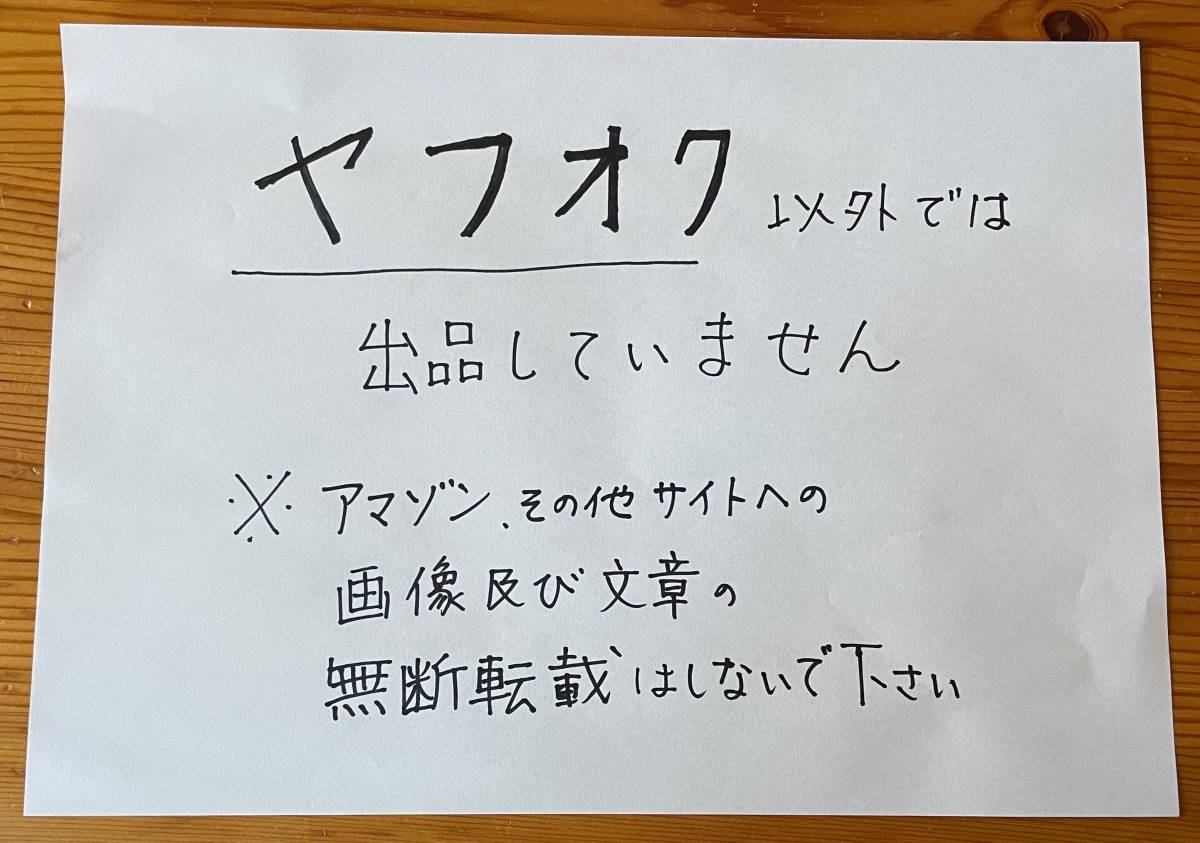 ヤフオク以外では
出品していません
※アマゾン、その他サイトへの
画像及び文章の
無断転載はしないで下さい